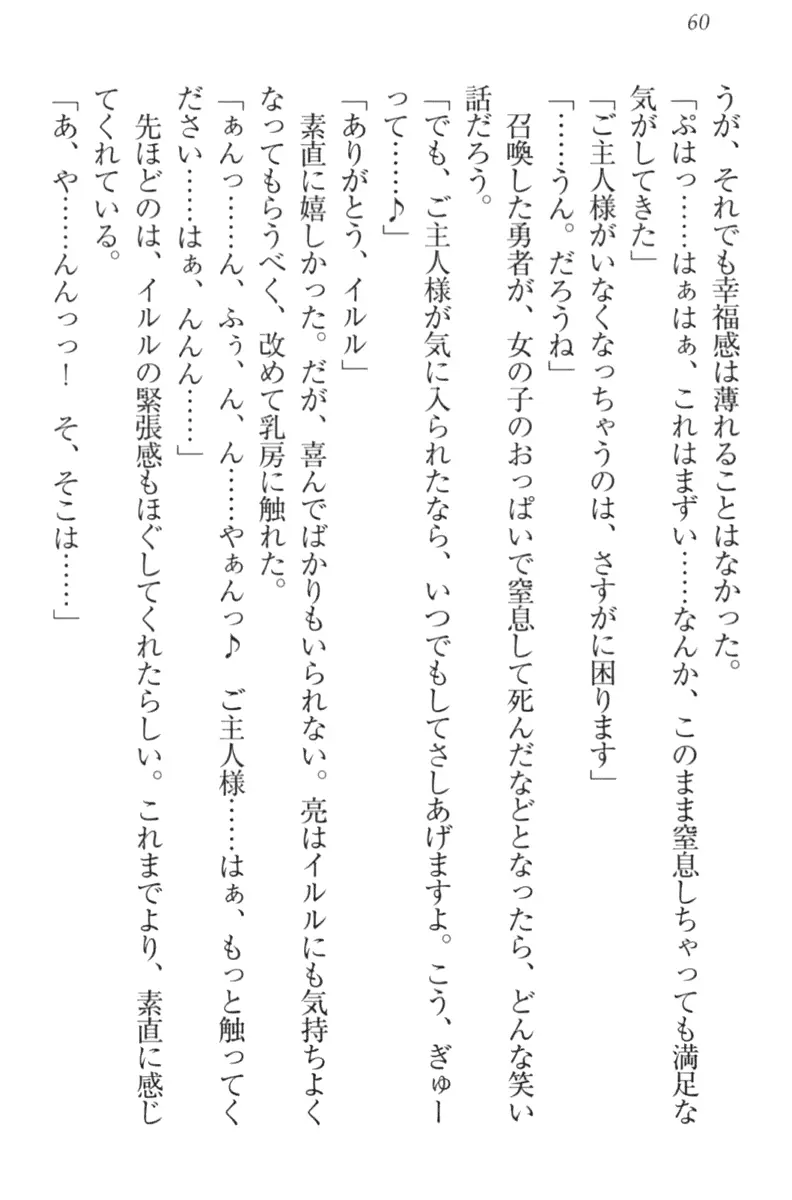 60
うが、それでも幸福感は薄れることはなかった。
「ぷはっ……はぁはぁ、これはまずい……なんか、このまま窒息しちゃっても満足な
気がしてきた」
「ご主人様がいなくなっちゃうのは、さすがに困ります」
「……うん。だろうね」
　召喚した勇者が、女の子のおっぱいで窒息して死んだなどとなったら、どんな笑い
話だろう。
「でも、ご主人様が気に入られたなら、いつでもしてさしあげますよ。こう、ぎゅー
って……♪」
「ありがとう、イルル」
　素直に嬉しかった。だが、喜んでばかりもいられない。亮はイルルにも気持ちよく
なってもらうべく、改めて乳房に触れた。
「ぁんっ……ん、ふぅ、ん、ん……やぁんっ♪　ご主人様……はぁ、もっと触ってく
ださい……はぁ、んんん……」
　先ほどのは、イルルの緊張感もほぐしてくれたらしい。これまでより、素直に感じ
てくれている。
「あ、や……んんっっ！　そ、そこは……」